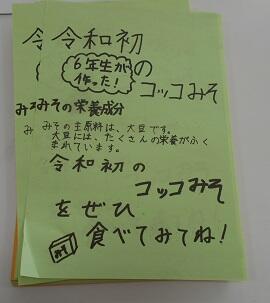 令和初
6年生が
作った!
の
コッコみそ
みその栄養成分
みその主原料は、大豆です。
大豆には、たくさんの栄養がふく
まれています。
令和初の
コッコみそ
をぜひ
食べてみてね!
みそ